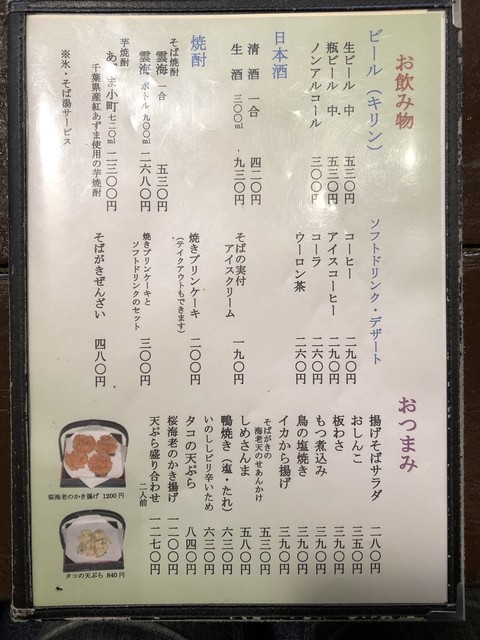 お飲み物
ビール（キリン）
生ビール 中 五三〇円
瓶ビール 中 五三〇円
ノンアルコール 三〇〇円
日本酒
清酒 一合 四二〇円
生酒 三〇〇ml 九三〇円
焼酎
そば焼酎
雲海 一合 五三〇円
雲海 ボトル 九〇〇ml 二六八〇円
芋焼酎
あ、ま小町 七二〇ml 二三〇〇円
千葉県産紅あずま使用の芋焼酎
※氷・そば湯サービス
ソフトドリンク・デザート
コーヒー 二九〇円
アイスコーヒー 二九〇円
コーラ 二六〇円
ウーロン茶 二六〇円
そばの実付
アイスクリーム 一九〇円
焼きプリンケーキ 二〇〇円
（テイクアウトもできます）
焼きプリンケーキと
ソフトドリンクのセット 三〇〇円
そばがきぜんざい 四八〇円
おつまみ
揚げそばサラダ 二八〇円
おしんこ 三五〇円
板わさ 三九〇円
もつ煮込み 三九〇円
鳥の塩焼き 三九〇円
イカから揚げ 三九〇円
そばがきの
海老天のせあんかけ 五三〇円
しめさんま 五八〇円
鴨焼き（塩・たれ） 六三〇円
いのししピリ辛いため 六三〇円
タコの天ぷら 八四〇円
桜海老のかき揚げ 一二〇〇円
天ぷら盛り合わせ 一二七〇円
二人前
桜海老のかき揚げ 1200円
タコの天ぷら 840円